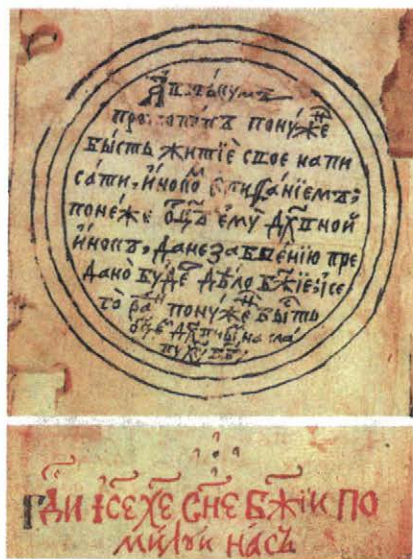 Аввакумъ
протопопъ понуже́ⷩ҇
бысть житїѐ свое напи
са́ти, и́ноко́ⷨ Епифа́нїемъ,
поне́же ѻ҃цъ ему̀ дх҃вной
и́нокъ, да не забве́нїю пре
дано̀ бу́деⷮ дѣ́ло бж҃їе; і се
го̀ раⷣ понуже́ⷩ бы́сть
на сла
Гд҃и І҃се Хе҃ Сн҃е Бж҃їи по
милꙋи на́съ